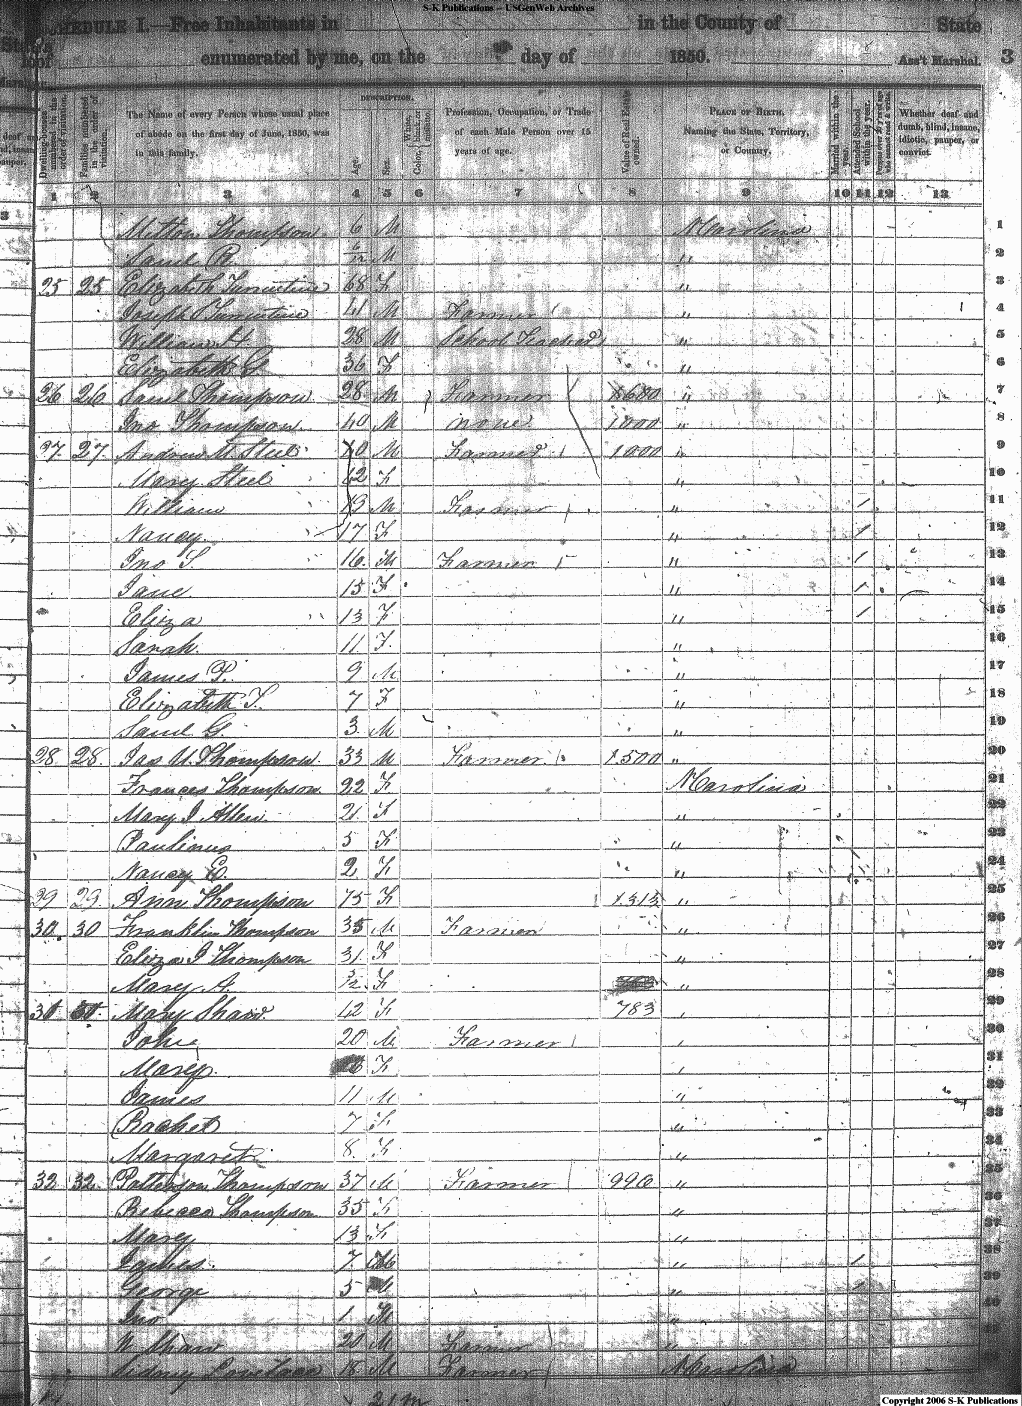 S-K Publications – USGenWeb Archives
SCHEDULE I.—Free Inhabitants in in the County of State
enumerated by me, on the day of 1850. Ass't Marshal. 3
DESCRIPTION.
Dwelling-houses numbered in the order of visitation.
Families numbered in the order of visitation.
The Name of every Person whose usual place of abode on the first day of June, 1850, was in this family.
Age.
Sex.
Color, White, black or mulatto.
Profession, Occupation, or Trade of each Male Person over 15 years of age.
Value of Real Estate owned.
PLACE OF BIRTH, Naming the State, Territory, or Country.
Married within the year.
Attended School within the year.
Persons over 20 y'rs of age who cannot read & write.
Whether deaf and dumb, blind, insane, idiotic, pauper, or convict.
1 2 3 4 5 6 7 8 9 10 11 12 13
Milton Thompson 6 M N Carolina 1
Saml R. 6/12 M " 2
25 25 Elizabeth 68 F " 3
Joseph 41 M Farmer " 4
William H. 28 M School Teacher " 5
Elizabeth 36 F " 6
26 26 Saml Thompson 28 M Farmer 1680 " 7
Jno Thompson 40 M none 1000 " 8
27 27 Andrew M Steel M Farmer 1000 " 9
Mary Steel 42 F " 10
William M Farmer " / 11
Nancy 17 F " / 12
Jno S. 16 M Farmer " / 13
Jane 15 F " / 14
Eliza 13 F " / 15
Sarah. 11 F " 16
James P. 9 M " 17
Elizabeth T. 7 F " 18
Saml G. 3 M " 19
28 28 Jas Thompson 33 M Farmer 1500 " 20
Frances Thompson 22 F N Carolina 21
Mary J Allen 21 F " 22
Paulinus 5 F " 23
Nancy E. 2 F " 24
29 29 Ann Thompson 75 F 1313 " 25
30 30 Franklin Thompson 35 M Farmer " 26
Eliza J Thompson 31 F " 27
Mary A. F " 28
31 31 Mary Shaw 42 F 783 " 29
John 20 M Farmer " 30
Mary F " 31
James 11 M " 32
Rachel 7 F " 33
Margaret 8 F " 34
32 32 Patterson Thompson 37 M Farmer 990 " 35
Rebecca Thompson 35 F " 36
Mary 13 F " 37
James 7 M " / 38
George 5 M " / 39
Jno 1 M " 40
N Shaw 20 M Farmer "
Sidney Lovelace 18 M Farmer N Carolina
Copyright 2006 S-K Publications